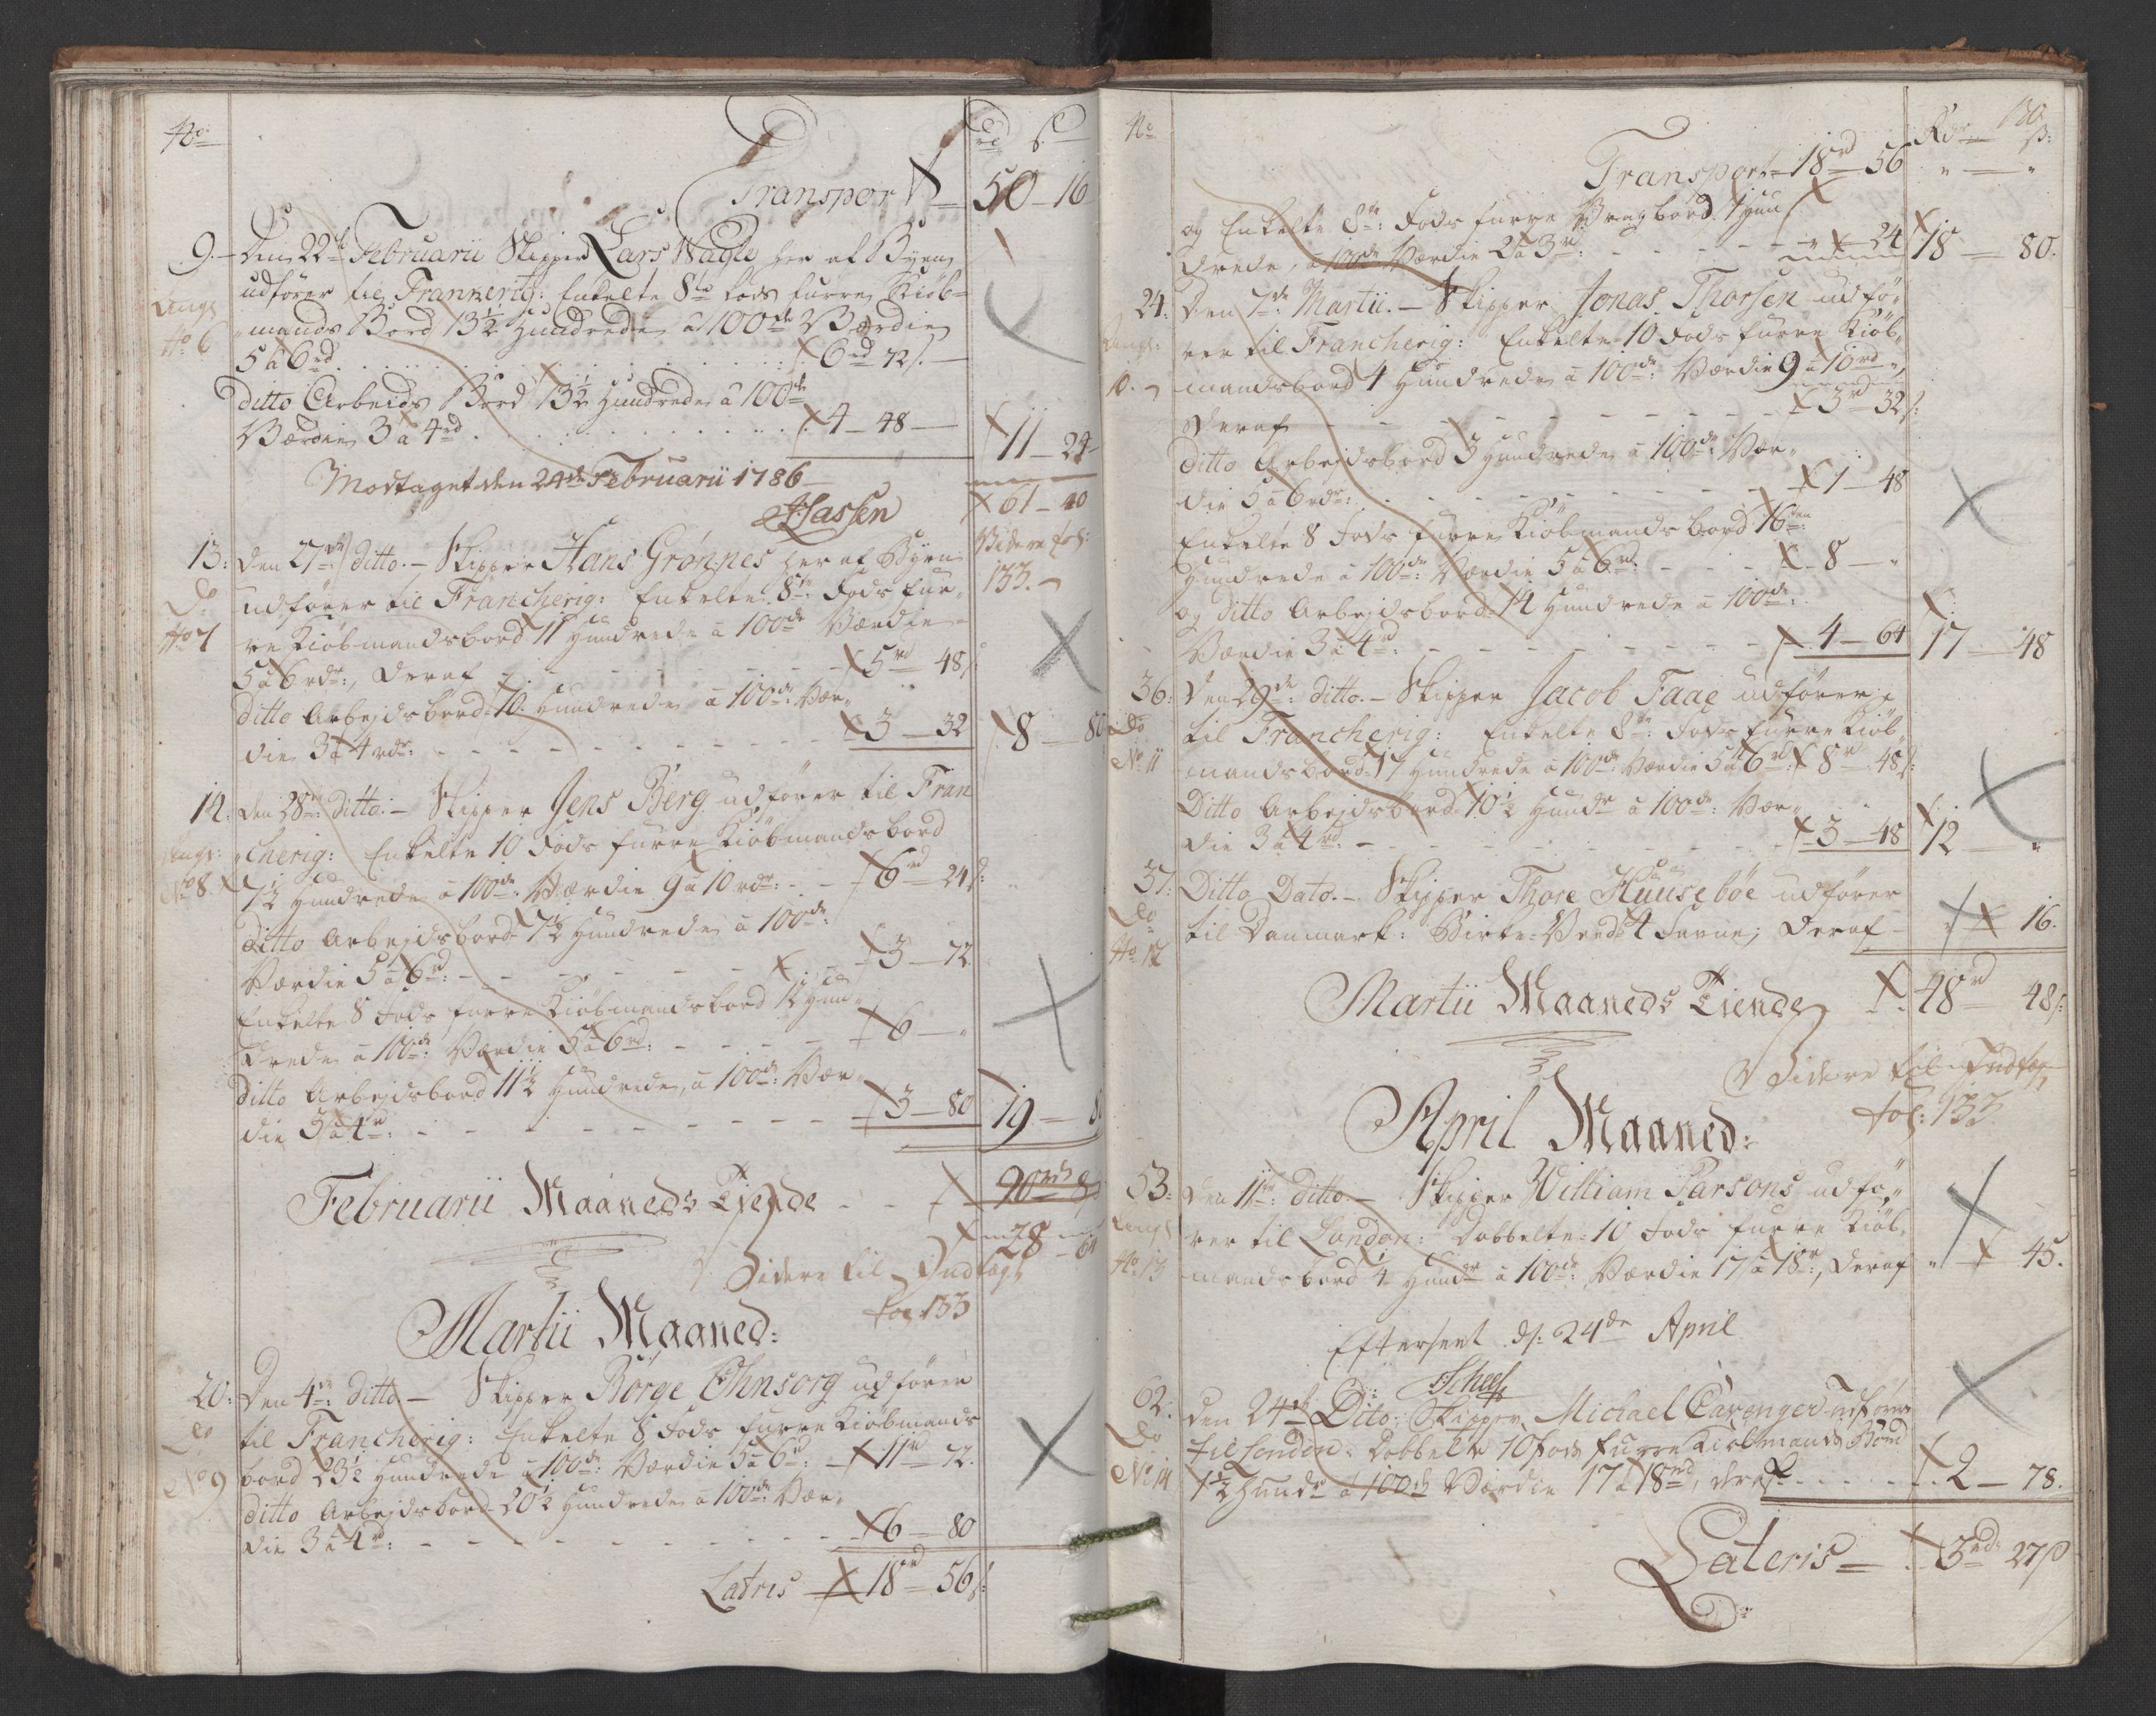 No
rd s
Transport 50 - 16
9. Den 22de Februarii Skipper Lars Wagle her af Byen
udfører til Frankerig: Enkelte 8te fods furre Kiöb-
mands Bord 13½ Hundrede a 100de Værdie
No 6
5 a 6rd . . . 6rd 72s.
ditto Arbeids Bord 13½ Hundrede a 100de
Værdie 3 a 4rd . . . 4 - 48
11 - 24
Modtaget den 24de Februarii 1786
61 - 40
Hassen
Videre fol:
133.
13: Den 27de ditto. - Skipper Hans Grønnes her af Byen
Do
udfører til Francherig: Enkelte 8te: Fods fur-
No 7
re Kiöbmandsbord 11 Hundrede a 100de Værdie
5 a 6 rdr:, deraf - - - 5rd 48s:
ditto Arbejdsbord 10 Hundrede a 100de: Vær-
die 3 a 4 rdr: - - - 3 - 32 8 - 80
14: Den 28de: Ditto. - Skipper Jens Berg udfører til Fran
cherig: Enkelte 10 Fods furre Kiöbmandsbord
No 8. 7½ Hundrede a 100de: Værdie 9 a 10 rdr: - - 6rd 24s:
ditto Arbejdsbord 7½ Hundrede a 100de:
Værdie 5 a 6rd: - - - 3 - 72
Enkelte 8 Fods furre Kiöbmandsbord 12 Hun-
drede a 100de: Værdie 5 a 6rd: - - - 6 - "
ditto Arbejdsbord 11½ Hundrede, a 100de: Vær-
die 3 a 4rd: - - - 3 - 80 19 - 8
Februarii Maaneds Tiende - - 90rd 8s
28 - 64
Videre til Indtægt
fol 133
Martii Maaned:
20: Den 4de: ditto - Skipper Börge Ohnsorg udfører
Do
til Francherig: Enkelte 8 Fods furre Kiöbmands
No 9 bord 23½ Hundrede a 100de: Værdie 5 a 6rd: - 11rd 72.
ditto Arbejdsbord 20½ Hundrede a 100de: Vær-
die 3 a 4rd: - - - 6 - 80
Latris 18rd 56s:
130
No
Rdr s:
Transport 18rd 56 " - "
og Enkelte 8te: Fods furre Vragbord 1 Hun
drede, a 100de Værdie 2 a 3rd: - - - " 24 18 - 80.
24: Den 7de: Martii. - Skipper Jonas Thorsen udfø-
rer til Francherig: Enkelte 10 Fods furre Kiöb-
10. mandsbord 4 Hundrede a 100de: Værdie 9 a 10rd
Deraf - - - 3rd 32s:
ditto Arbejdsbord 3 Hundrede a 100de: Vær-
die 5 a 6rdr: - - - 1 - 48
Enkelte 8 Fods furre Kiöbmandsbord 16ten
Hundrede a 100de: Værdie 5 a 6rd: - - - 8 - "
og ditto Arbejdsbord 14 Hundrede a 100de:
Værdie 3 a 4rd: - - - 4 - 64 17 - 48
36: Den 29de: ditto. - Skipper Jacob Faae udfører
Do
til Francherig: Enkelte 8te: Fods furre Kiöb-
No 11
mandsbord 17 Hundrede a 100de: Værdie 5 a 6rd: 8rd 48s:
Ditto Arbejdsbord 10½ Hundr a 100de: Vær-
die 3 a 4rd: - - - 3 - 48 12 - "
37: Ditto Dato. - Skipper Thore Huuseböe udfører
Do
til Danmark: Birke-Veed 4 Favne; Deraf - " 16.
No 12
Martii Maaneds Tiende 48rd 48s:
Videre til Indtægt
fol: 133
April Maaned:
53: Den 11te: ditto. - Skipper William Parsons udfø-
rer til London: Dobbelte 10 Fods furre Kiöb-
No 13 mandsbord ¼ Hundr a 100de: Værdie 17 a 18r:, Deraf " 45.
Efterseet d: 24de April
Scheel
62. Den 24de Dito: Skipper Michael Cavenger udfører
Do
til London: Dobbelte 10 fods furre Kiobmands Bord
No 14 1½ Hundr a 100de Værdie 17 a 18rd, deraf . . . 2 - 78.
Lateris = 3rd 27s